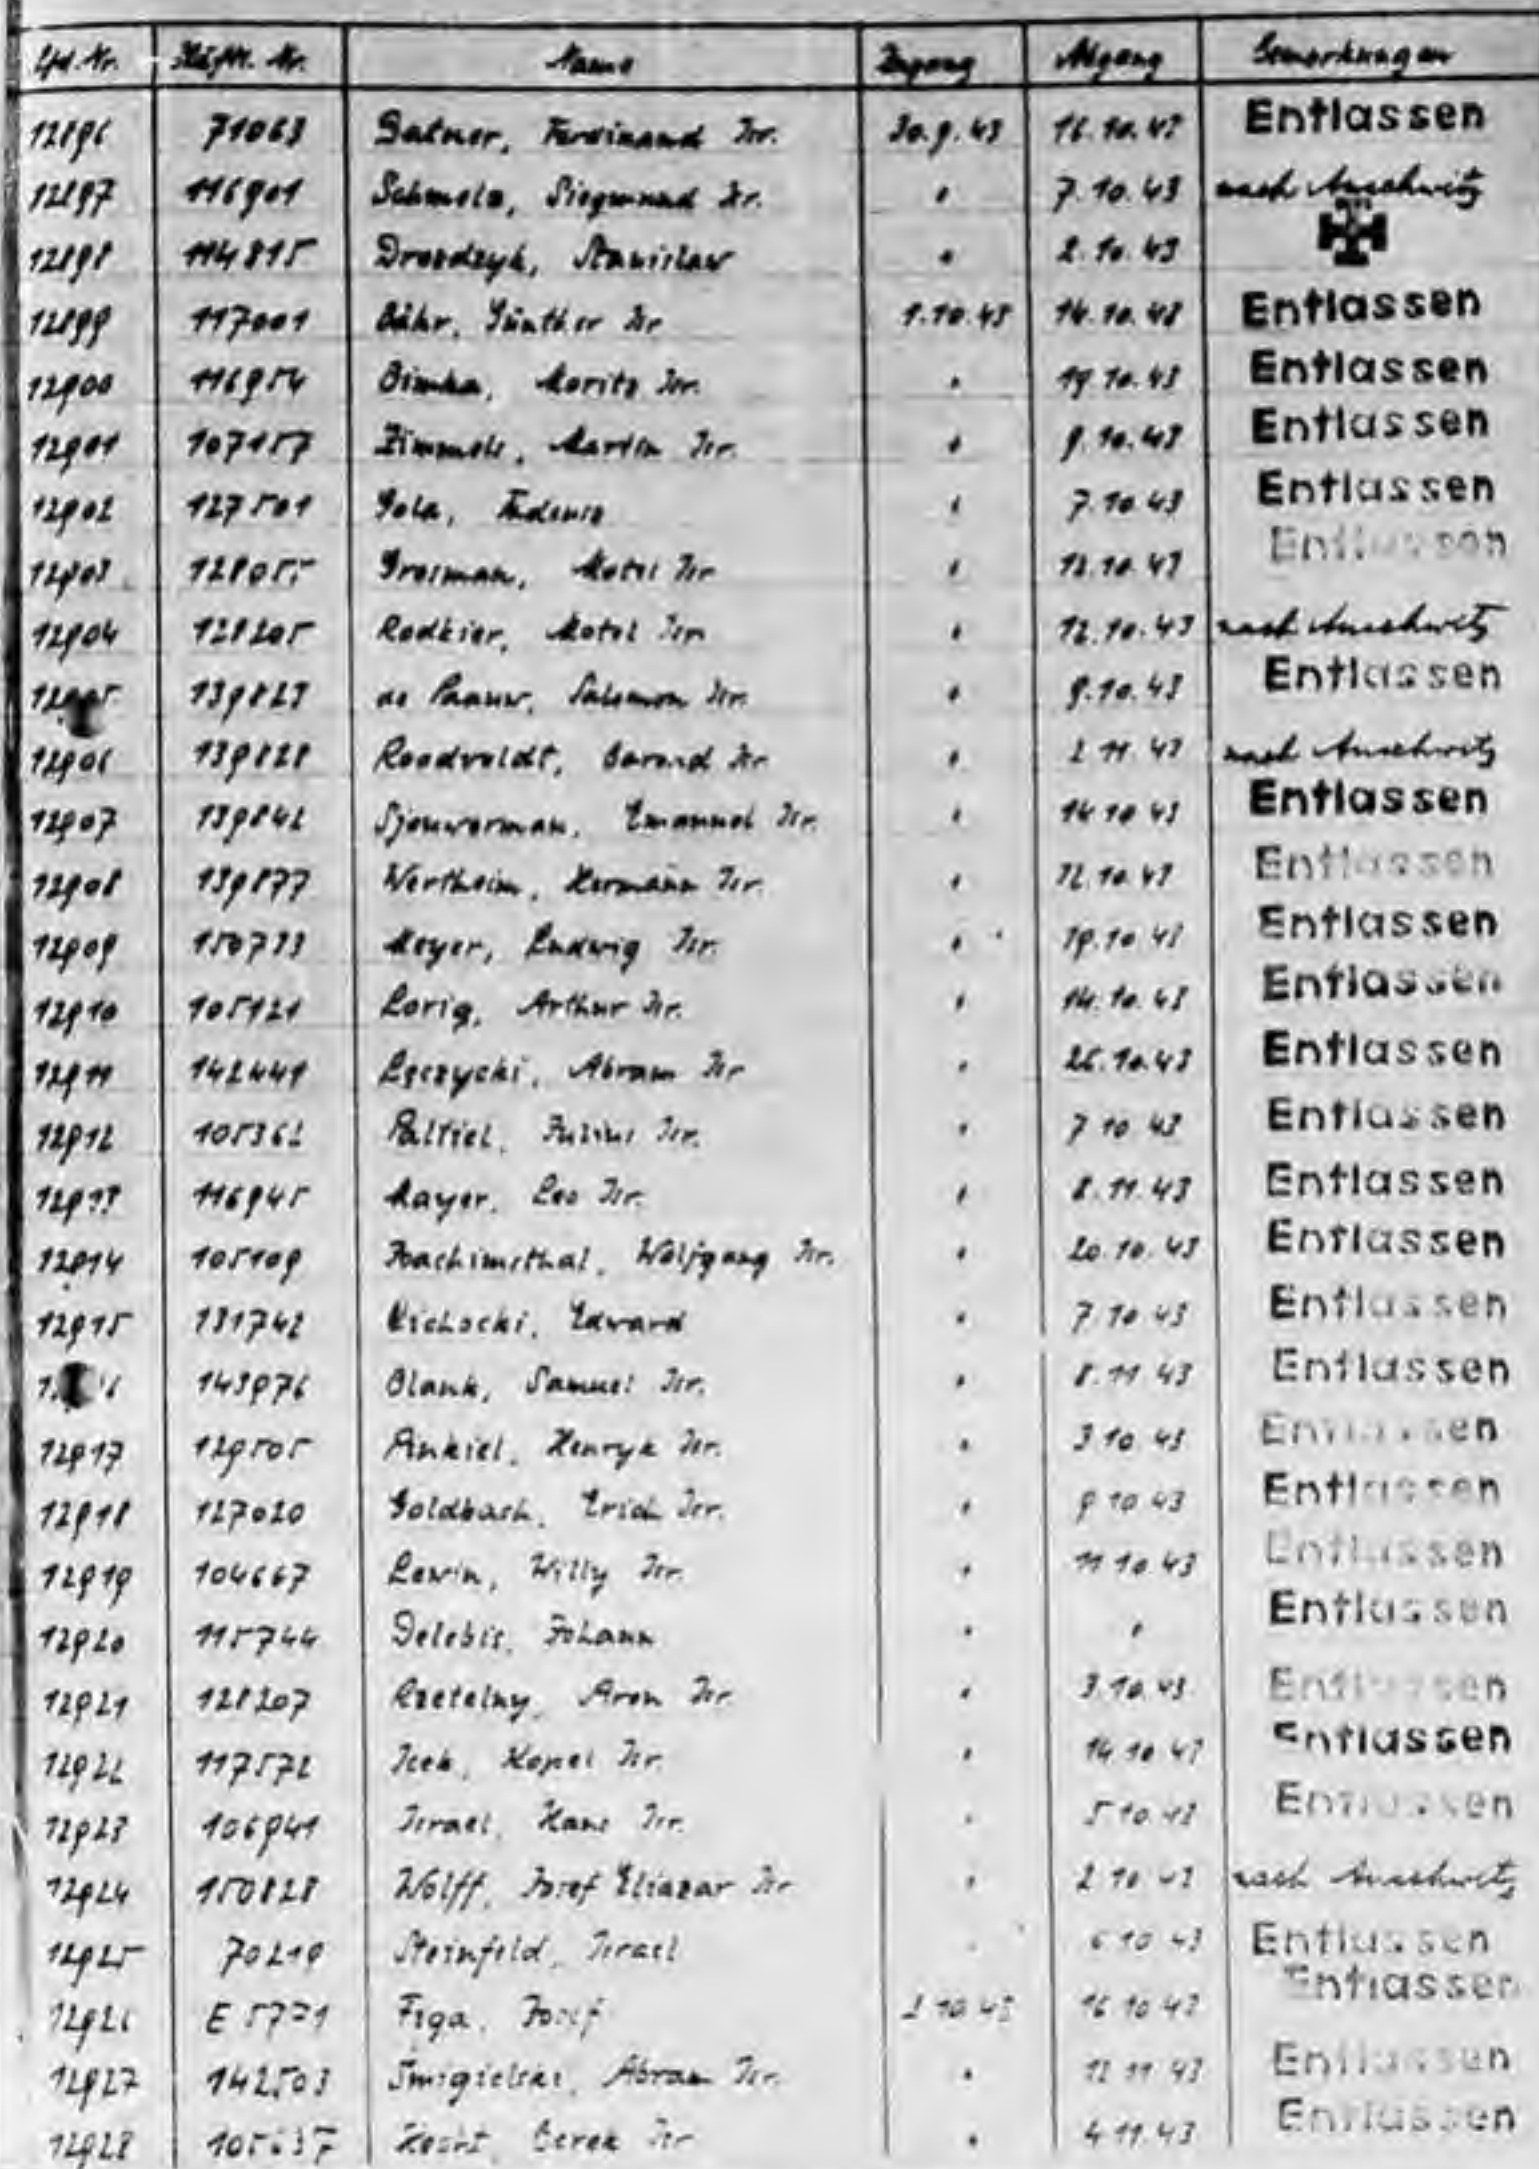 Lfd. Nr. Häftl. Nr. Name Zugang Abgang Bemerkungen
12896 71063 Gatner, Ferdinand Isr. 30.9.43 16.10.43 Entlassen
12897 116901 Schmolz, Siegmund Isr. " 7.10.43 nach Auschwitz
12898 114815 Drozdzyk, Stanislaw " 2.10.43
12899 117001 Bähr, Günther Isr 1.10.43 14.10.43 Entlassen
12900 116954 Bimka, Moritz Isr. " 19.10.43 Entlassen
12901 107157 Zimmels, Martin Isr. " 9.10.43 Entlassen
12902 127501 Gola, Tadeusz " 7.10.43 Entlassen
12903 128055 Grosman, Motel Isr " 12.10.43 Entlassen
12904 128205 Rodkier, Motel Isr. " 12.10.43 nach Auschwitz
139823 de Paauw, Salomon Isr. " 9.10.43 Entlassen
12906 139828 Roodveldt, Barend Isr " 2.11.43 nach Auschwitz
12907 139842 Sjouwerman, Emanuel Isr. " 14.10.43 Entlassen
12908 139877 Wertheim, Hermann Isr. " 12.10.43 Entlassen
12909 150733 Meyer, Ludwig Isr. " 19.10.43 Entlassen
12910 105121 Lorig, Arthur Isr. " 14.10.43 Entlassen
12911 142441 Łęczycki, Abram Isr " 26.10.43 Entlassen
12912 105362 Paltiel, Julius Isr. " 7.10.43 Entlassen
12913 116945 Mayer, Leo Isr. " 8.11.43 Entlassen
12914 105109 Joachimsthal, Wolfgang Isr. " 20.10.43 Entlassen
12915 131742 Cichocki, Edward " 7.10.43 Entlassen
143976 Blank, Samuel Isr. " 8.11.43 Entlassen
12917 129505 Pinkiel, Henryk Isr. " 3.10.43 Entlassen
12918 127020 Goldbach, Erich Isr. " 9.10.43 Entlassen
12919 104667 Lewin, Willy Isr. " 11.10.43 Entlassen
12920 115744 Delebis, Johann " " Entlassen
12921 128207 Rzetelny, Aron Isr. " 3.10.43 Entlassen
12922 117572 Icek, Kopel Isr. " 14.10.43 Entlassen
12923 106941 Israel, Hans Isr. " 5.10.43 Entlassen
12924 150828 Wolff, Josef Eliazar Isr " 2.10.43 nach Auschwitz
12925 70219 Steinfeld, Israel " 6.10.43 Entlassen
12926 E 5771 Figa, Josef 2.10.43 16.10.43 Entlassen
12927 142503 Smigielski, Abram Isr. " 12.11.43 Entlassen
12928 Berek Isr " 4.11.43 Entlassen